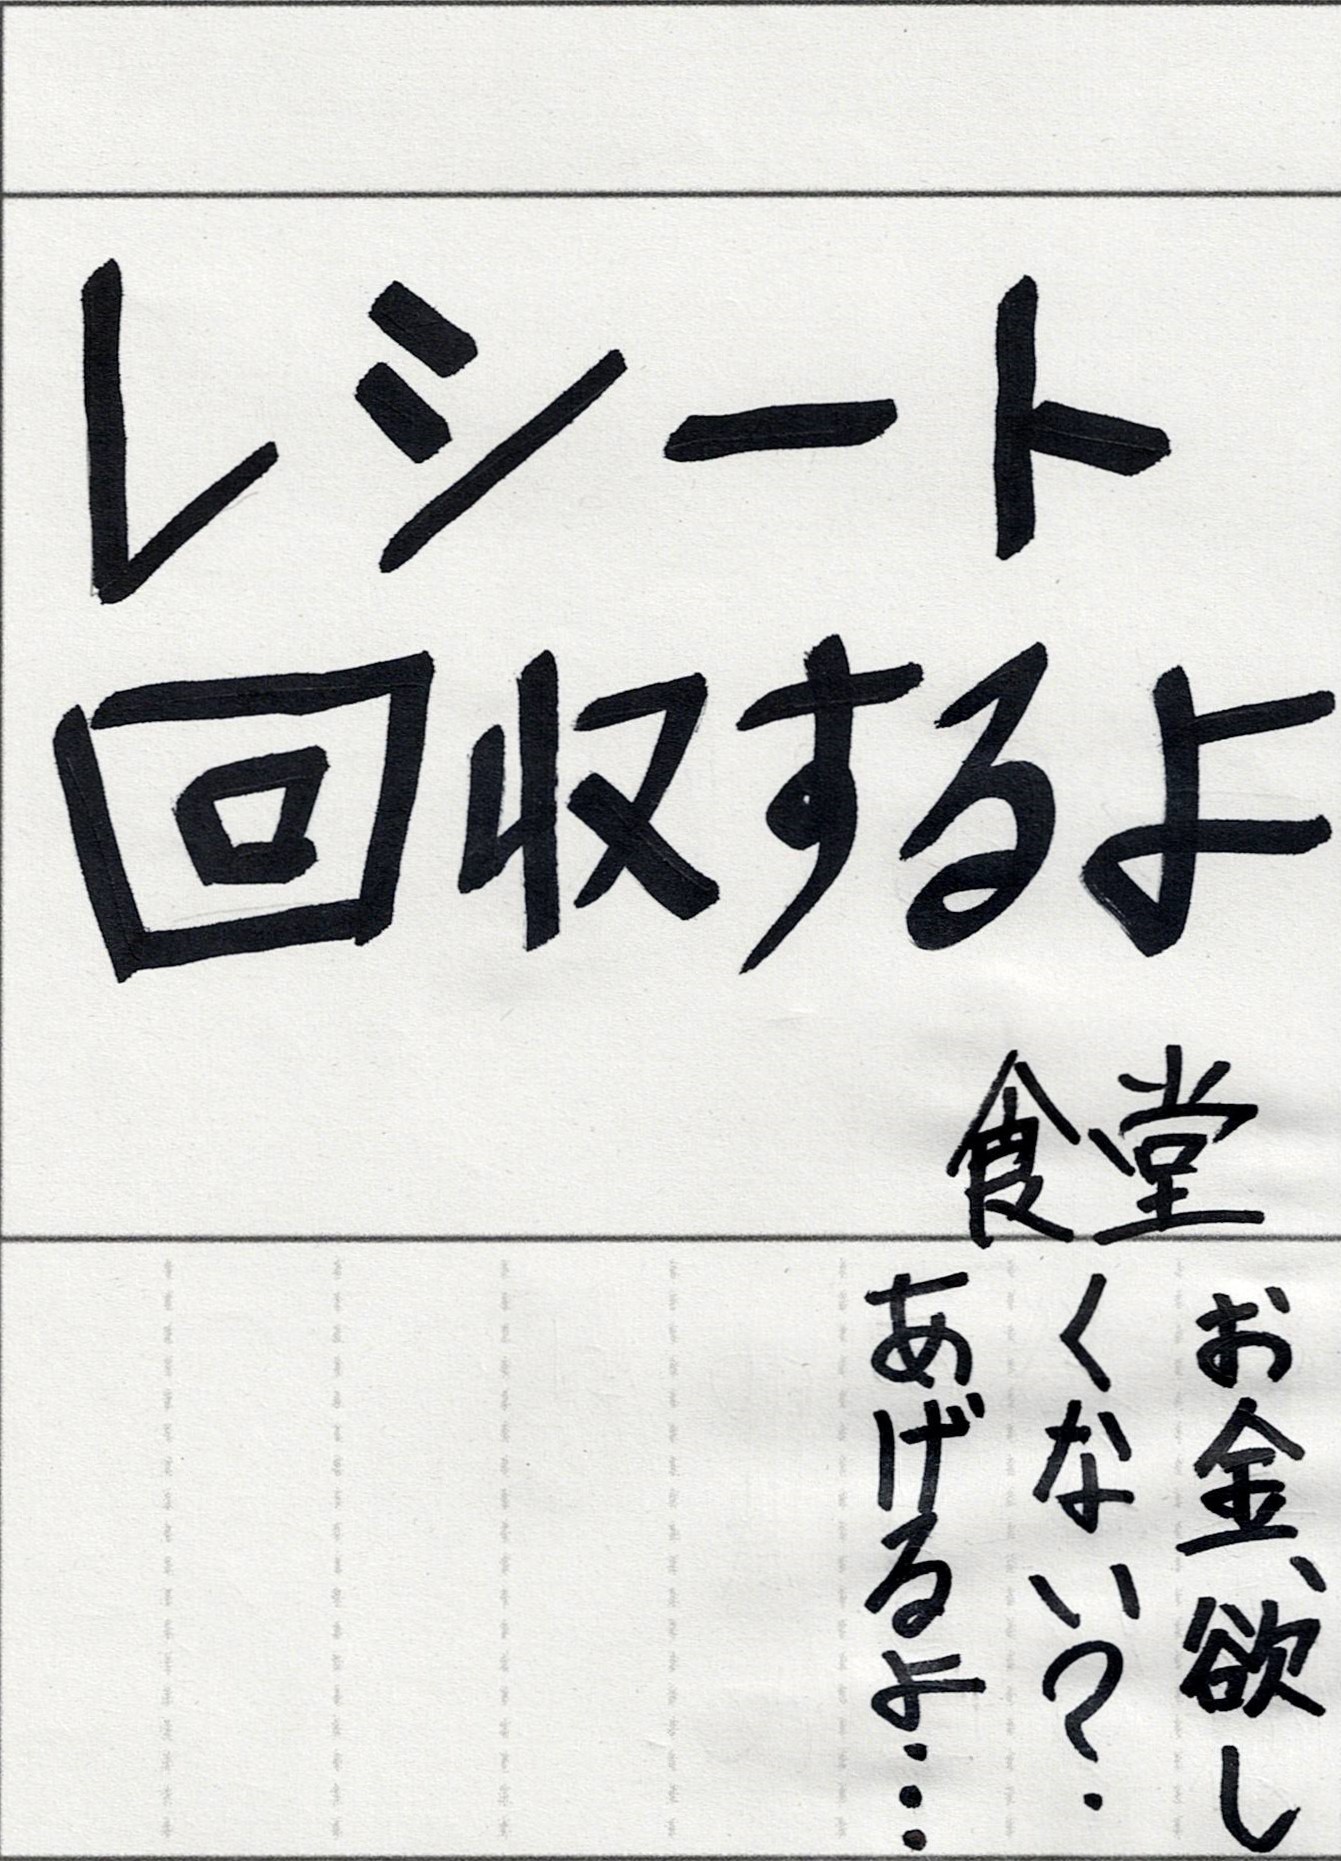 レシート
回収するよ
食堂
お金、欲し
くない?
あげるよ…